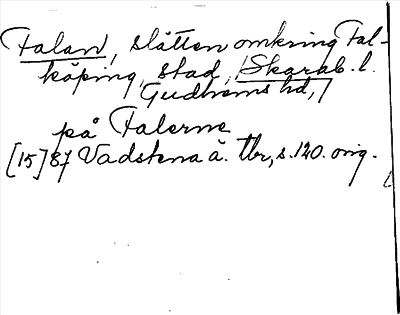 Falan, slätten omkring Fal-
köping, stad, /Skarab. l.
Gudhems hd,/
på Falerne
[15]87 Vadstena ä. tbr, s. 120. orig.